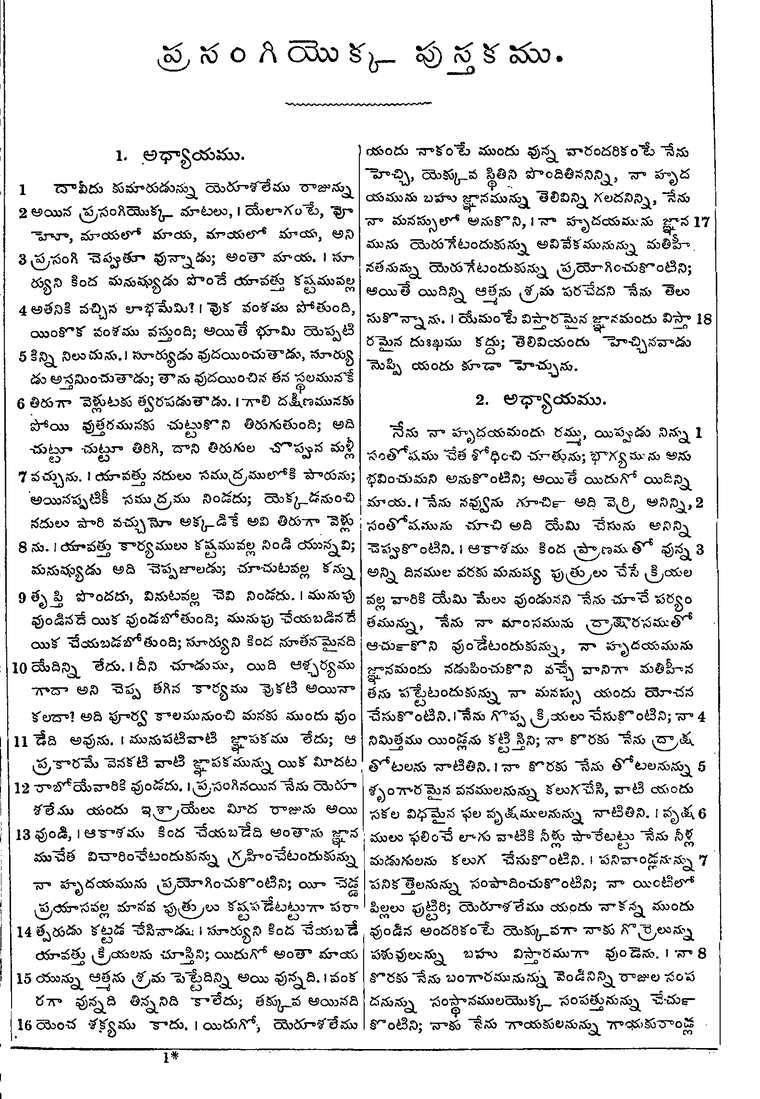 ప్రసంగియొక్క పుస్తకము.
1. అధ్యాయము.
1 దావీదు కుమారుడున్ను యెరూశలేము రాజున్ను
2 అయిన ప్రసంగియొక్క మాటలు, । యేలాగంటే, వ్రో
హెూ, మాయలో మాయ, మాయలో మాయ, అని
3 ప్రసంగి చెప్పుతూ వున్నాడు; అంతా మాయ. । సూ
ర్యుని కింద మనుష్యుడు పొందే యావత్తు కష్టమువల్ల
4 అతనికి వచ్చిన లాభమేమి? । వుక వంశము పోతుంది,
యింకొక వంశము వస్తుంది; అయితే భూమి యెప్పటి
5 కిన్ని నిలుచును. । సూర్యుడు వుదయించుతాడు, సూర్యు
డు అస్తమించుతాడు; తాను వుదయించిన తన స్థలమునకే
6 తిరుగా వెళ్లుటకు త్వరపడుతాడు. । గాలి దక్షిణమునకు
పోయి వుత్తరమునకు చుట్టుకొని తిరుగుతుంది; అది
చుట్టూ చుట్టూ తిరిగి, దాని తిరుగుల చొప్పున మళ్లీ
7 వచ్చును. । యావత్తు నదులు సముద్రములోకి పారును;
అయినప్పటికీ సముద్రము నిండదు; యెక్కడనుంచి
నదులు పారి వచ్చునో అక్కడికే అవి తిరుగా వెళ్లు
8 ను. । యావత్తు కార్యములు కష్టమువల్ల నిండి యున్నవి;
మనుష్యుడు అది చెప్పజాలడు; చూచుటవల్ల కన్ను
9 తృప్తి పొందదు, వినుటవల్ల చెవి నిండదు. । మునుపు
వుండినదే యిక వుండబోతుంది; మునుపు చేయబడినదే
యిక చేయబడబోతుంది; సూర్యుని కింద నూతనమైనది
10 యేదిన్ని లేదు. । దీని చూడుము, యిది ఆశ్చర్యము
గాదా అని చెప్ప తగిన కార్యము వుకటి అయినా
కలదా? అది పూర్వ కాలమునుంచి మనకు ముందు వుం
11 డేది అవును. । మునుపటివాటి జ్ఞాపకము లేదు; ఆ
ప్రకారమే వెనకటి వాటి జ్ఞాపకమున్ను యిక మీదట
12 రాబోయేవారికి వుండదు. । ప్రసంగినయిన నేను యెరూ
శలేము యందు ఇశ్రాయేలు మీద రాజును అయి
13 వుండి, । ఆకాశము కింద చేయబడేది అంతాను జ్ఞాన
ముచేత విచారించేటందుకున్ను గ్రహించేటందుకున్ను
నా హృదయమును ప్రయోగించుకొంటిని; యీ చెడ్డ
ప్రయాసవల్ల మానవ పుత్రులు కష్టపడేటట్టుగా పరా
14 త్పరుడు కట్టడ చేసినాడు. । సూర్యుని కింద చేయబడే
యావత్తు క్రియలను చూస్తిని; యిదుగో అంతా మాయ
15 యున్ను ఆత్మను శ్రమ పెట్టేదిన్ని అయి వున్నది. । వంక
రగా వున్నది తిన్ననిది కాలేదు; తక్కువ అయినది
16 యెంచ శక్యము కాదు. । యిదుగో, యెరూశలేము
యందు నాకంటే ముందు వున్న వారందరికంటే నేను
హెచ్చి, యెక్కువ స్థితిని పొందితిననిన్ని, నా హృద
యమును బహు జ్ఞానమున్ను తెలివిన్ని గలదనిన్ని, నేను
నా మనస్సులో అనుకొని, । నా హృదయమును జ్ఞాన 17
మును యెరుగేటందుకున్ను అవివేకమునున్ను మతిహీ
నతనున్ను యెరుగేటందుకున్ను ప్రయోగించుకొంటిని;
అయితే యిదిన్ని ఆత్మను శ్రమ పరచేదని నేను తెలు
సుకొన్నాను. । యేమంటే విస్తారమైన జ్ఞానమందు విస్తా 18
రమైన దుఃఖము కద్దు; తెలివియందు హెచ్చినవాడు
నొప్పి యందు కూడా హెచ్చును.
2. అధ్యాయము.
నేను నా హృదయమందు రమ్ము, యిప్పుడు నిన్ను 1
సంతోషము చేత శోధించి చూతును; భాగ్యమును అను
భవించుమని అనుకొంటిని; అయితే యిదుగో యిదిన్ని
మాయ. । నేను నవ్వును గూర్చి అది వెర్రి అనిన్ని, 2
సంతోషమును చూచి అది యేమి చేసును అనిన్ని
చెప్పుకొంటిని. । ఆకాశము కింద ప్రాణముతో వున్న 3
అన్ని దినముల వరకు మనుష్య పుత్రులు చేసే క్రియల
వల్ల వారికి యేమి మేలు వుండునని నేను చూచే పర్యం
తమున్ను, నేను నా మాంసమును ద్రాక్షారసముతో
ఆచుర్కొని వుండేటందుకున్ను, నా హృదయమును
జ్ఞానమందు నడుపించుకొని వచ్చే వానిగా మతిహీన
తను పట్టేటందుకున్ను నా మనస్సు యందు యోచన
చేసుకొంటిని. । నేను గొప్ప క్రియలు చేసుకొంటిని; నా 4
నిమిత్తము యిండ్లను కట్టిస్తిని; నా కొరకు నేను ద్రాక్ష
తోటలను నాటితిని. । నా కొరకు నేను తోటలనున్ను 5
శృంగారమైన వనములనున్ను కలుగచేసి, వాటి యందు
సకల విధమైన ఫల వృక్షములనున్ను నాటితిని. । వృక్ష 6
ములు ఫలించే లాగు వాటికి నీళ్లు పారేటట్టు నేను నీళ్ల
మడుగులను కలుగ చేసుకొంటిని. । పనివాండ్లనున్ను 7
పనికత్తెలనున్ను సంపాదించుకొంటిని; నా యింటిలో
పిల్లలు పుట్టిరి; యెరూశలేము యందు నాకన్న ముందు
వుండిన అందరికంటే యెక్కువగా నాకు గొర్రెలున్ను
పశువులున్ను బహు విస్తారముగా వుండెను. । నా 8
కొరకు నేను బంగారమునున్ను వెండినిన్ని రాజుల సంప
దనున్ను సంస్థానములయొక్క సంపత్తునున్ను చేచుర్క
కొంటిని; నాకు నేను గాయకులనున్ను గాయకురాండ్ల
1*